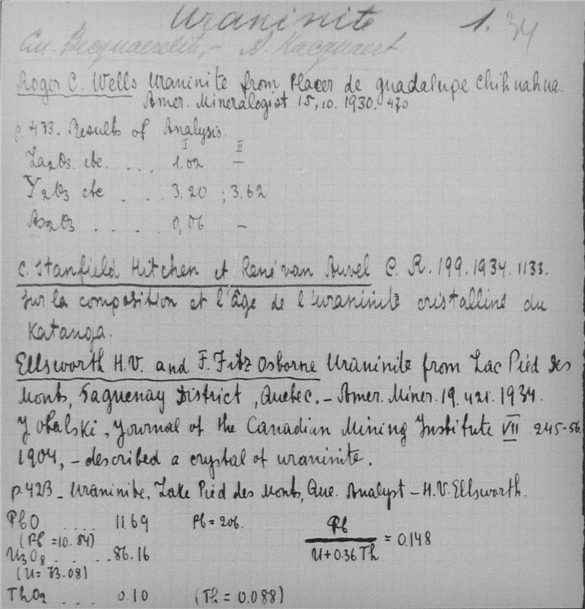 Uraninite 1. 34
Roger C. Wells Uraninite from Placer de guadalupe Chihuahua.
Amer. Mineralogist 15, 10. 1930. 470
p. 473. Results of Analysis.
I II
La2O3 etc. .... 1.02 –
Y2O3 etc .... 3.20 ; 3.62
As2O3 .... 0,06 –
C. Stanfield Hitchen et René van Auvel C. R. 199. 1934. 1133.
Sur la composition et l'âge de l'uraninite cristalline du
Katanga.
Ellsworth H.V. and F. Fitz Osborne Uraninite from Lac Pied des
Monts, Saguenay District, Quebec. – Amer. Miner. 19. 421. 1934.
J Obalski, Journal of the Canadian Mining Institute VII 245-56.
1904, – described a crystal of uraninite.
p. 423 – Uraninite. Lake Pied des Monts, Que. Analyst – H.V. Ellsworth.
PbO .... 11.69 Pb = 206. Pb / U + 0.36 Th = 0.148
(Pb = 10.84)
U3O8 ...... 86.16
(U = 73.08)
ThO2 ... 0.10 (Th = 0.088)